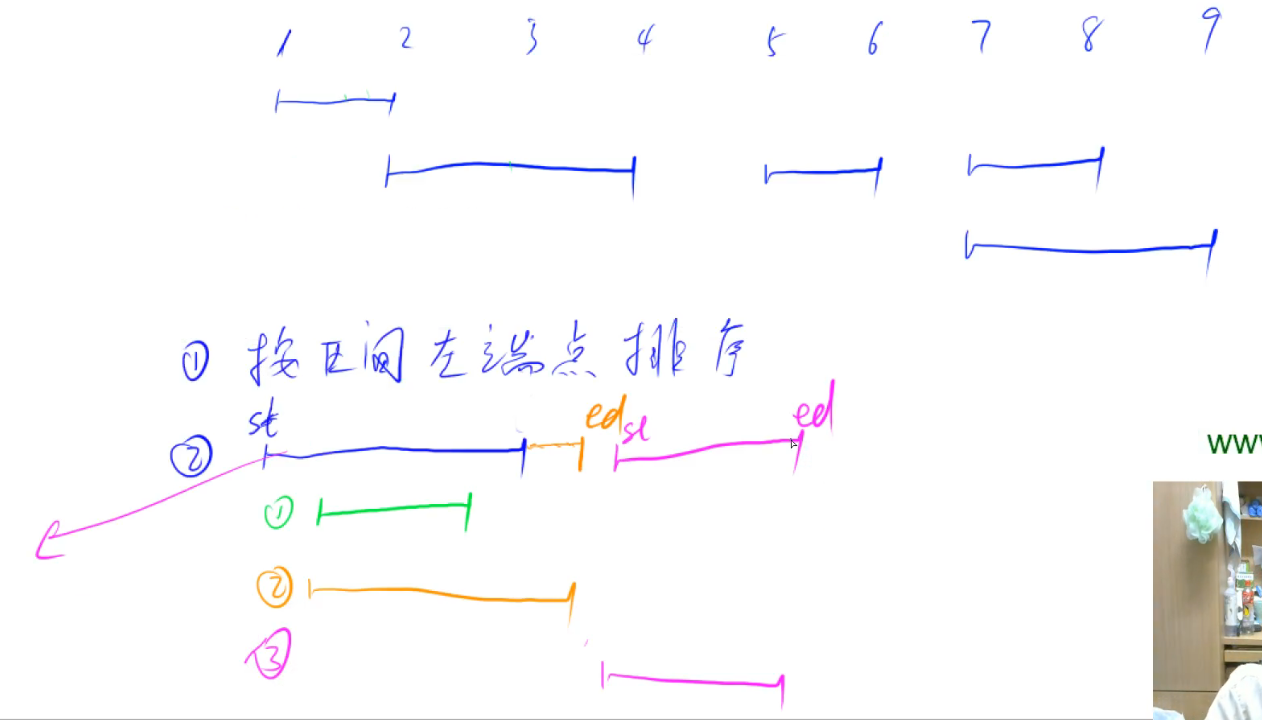 1 2 3 4 5 6 7 8 9
① 按区间左端点排序
st ed st ed
②
①
②
③
www